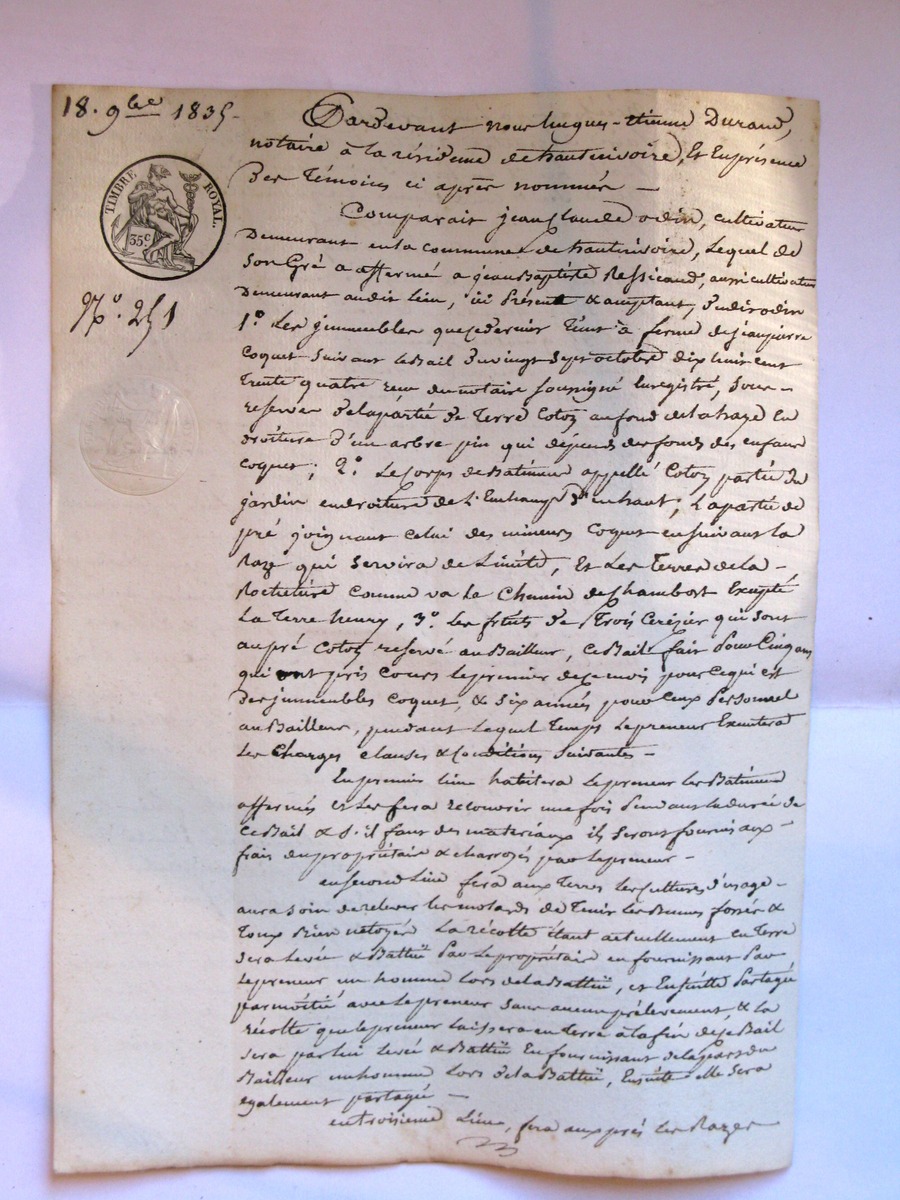 18. 9bre 1835
TIMBRE ROYAL.
35c
No. 251
Pardevant nous hugues-Etienne Durand,
notaire à la résidence de hauterivoire, Et En présence
Des Témoins ci après nommés —
Comparait jean Claude odin, cultivateur
Demeurant en la commune de hauterivoire, Lequel de
Son Gré a affermé a jean Baptiste Ressicaud, aussi cultivateur
Demeurant audit Lieu, ici Présent & acceptant, dudit odin
1o Les jmmeubles que ce dernier Tient à ferme de jean pierre
Coquet Suivant le Bail du vingt Sept octobre dix huit cent
Trente quatre reçu du notaire Soussigné Enregistré, Sous—
reserve de la partie de Terre Cotoz au fond de la haze En
droiture d'un arbre pin qui dépend des fonds des enfans
Coquet; 2o Le Corps de Bâtiment appellé Cotoz, partie du
jardin en droiture de L' D'en haut; La partie de
pré joignant celui des mineurs Coquet en suivant la
Raze qui Servira de Limite, Et Les Terres de la —
comme va Le Chemin de Chambost Excepté
La Terre henry, 3o. Les fruits de Trois Cerisier qui sont
au pré Cotoz reservé au Bailleur, Ce Bail fait Pour Cinq ans
qui ont pris Cours le premier de ce mois pour ce qui est
Des jmmeubles Coquet, & Six années pour Ceux Personnel
au Bailleur, pendant Lequel Temps Le preneur Executera
Les Charges clauses & Conditions Suivantes —
En premier Lieu habitera Le preneur les Bâtimens
affermés et Les fera recouvrir une fois Pendant la durée de
Ce Bail & S'il faut des materiaux ils Seront fournis aux —
frais du propriétaire & charroyés par Le preneur —
en Second Lieu fera aux Terres les cultures d'usage —
aura soin de relever les molards de Tenir les fossés &
Toux Bien netoyés La récolte étant actuellement en Terre
Sera Levée & Battüe Par Le propriétaire en fournissant Par
Le preneur un homme Lors de la Battüe, et Ensuite Partagée
par moitié avec Le preneur Sans aucun prélevement, & la
récolte que le preneur Laissera en Terre à la fin de ce Bail
Sera par lui Levée & Battüe En fournissant de la part du
Bailleur un homme Lors de la Battüe, Ensuite elle Sera
également partagée —
en troisieme Lieu, fera aux prés les Razes